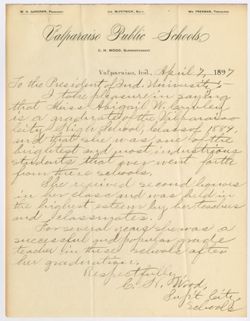 W. H. GARDNER, PRESIDENT.
WM. FREEMAN, TREASURER.
Valparaiso Public Schools,
C. H. WOOD, SUPERINTENDENT.
Valparaiso, Ind., April 7, 1897
To the President of Ind. University:
I take pleasure in saying
that Miss Abigail W.
is a graduate of the Valparaiso
City High School, class of 1884,
and that she was one of the
brightest and most industrious
students that ever went forth
from these schools.
She received second honors
in her class and was held in
the highest esteem by her teachers
and classmates.
For several years she was a
successful and popular grade
teacher in these schools after
her graduation.
Respectfully,
C. H. Wood,
Supt. City
Schools